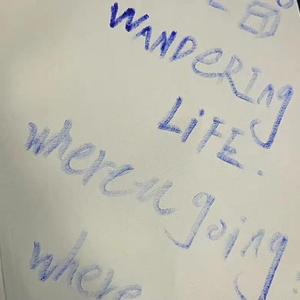 WANDERING
LIFE.
where u going
where